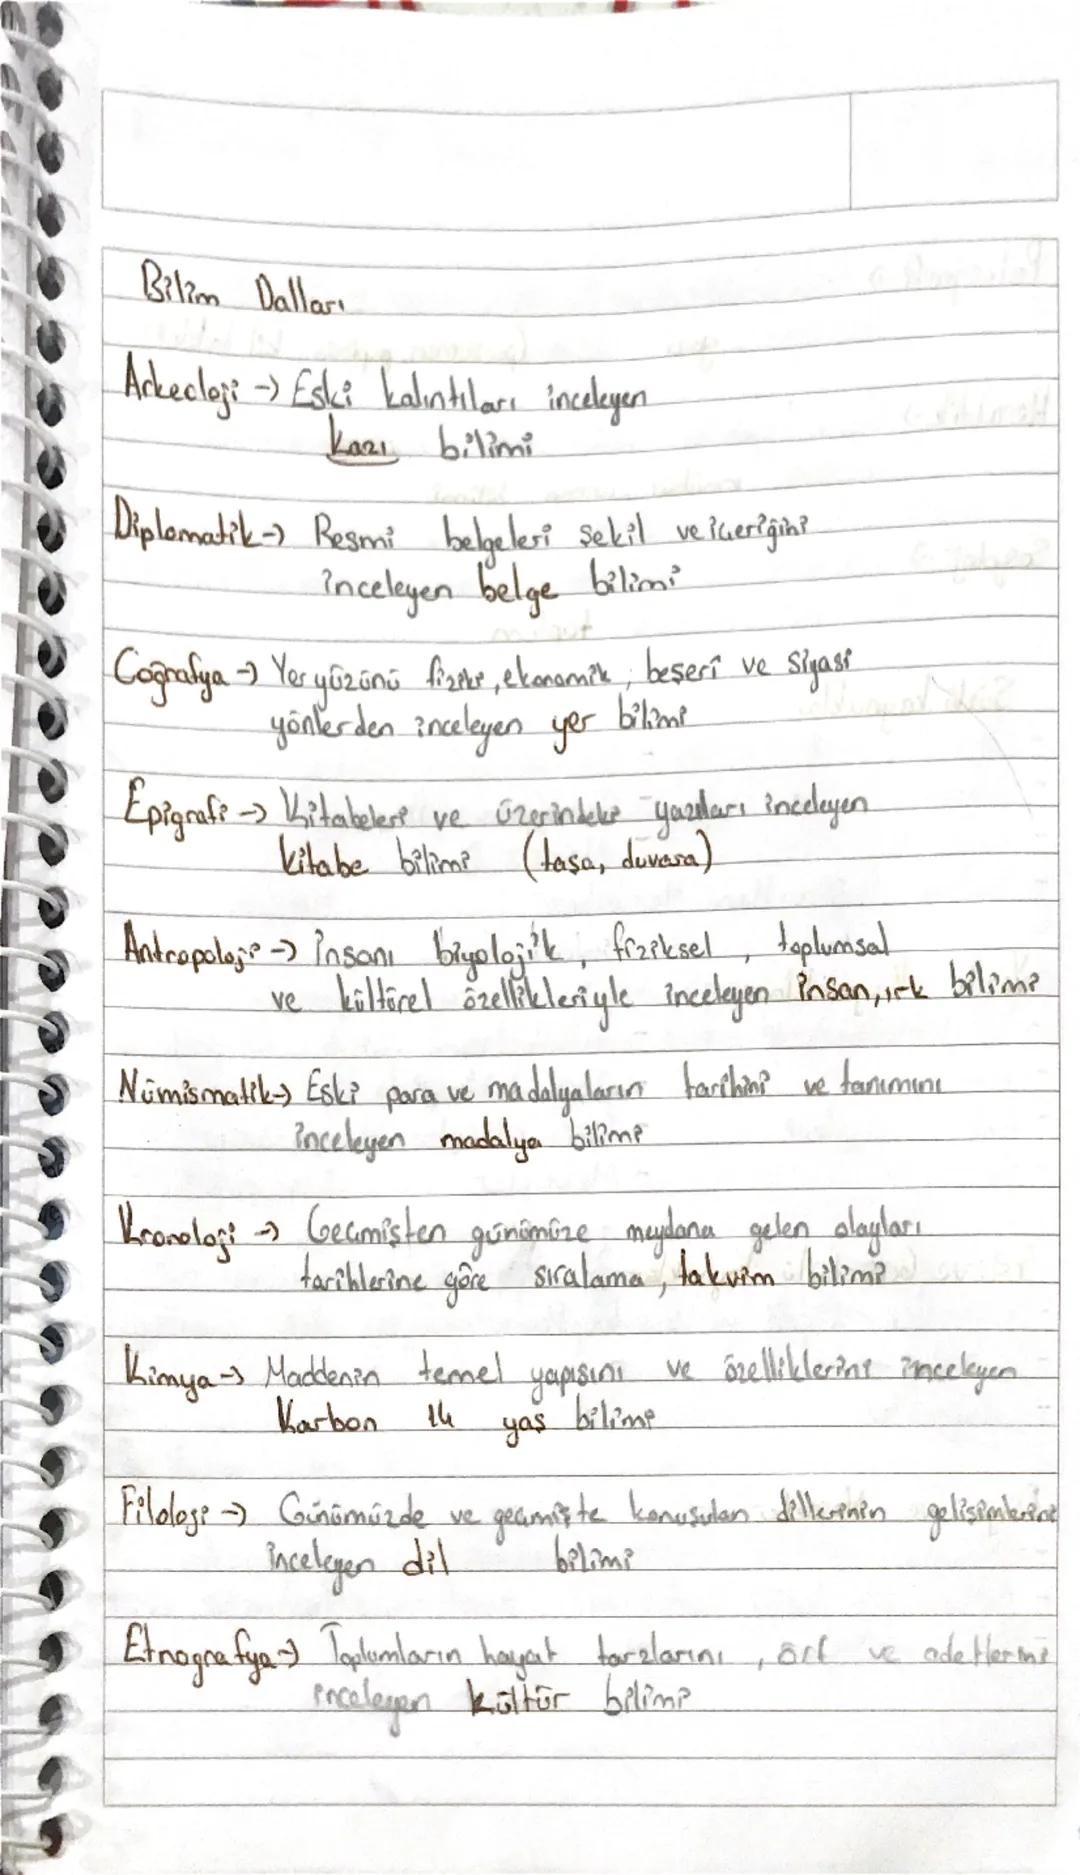 Bilim Dalları
Arkeoloji → Eski kalıntıları inceleyen
kazı bilimi
Diplomatik → Resmi belgeleri şekil ve içeriğini
inceleyen belge bilimi
Coğrafya → Yer yüzünü fiziki, ekonomik, beşerî ve siyasi
yönlerden inceleyen yer bilimi
Epigrafi → Kitabeleri ve üzerindeki yazıları inceleyen
kitabe bilimi (taşa, duvara)
Antropoloji → İnsanı biyolojik, fiziksel, toplumsal
ve kültürel özellikleriyle inceleyen insan, ırk bilimi
Nümismatik → Eski para ve madalyaların tarihini ve tanımını
inceleyen madalya bilimi
Kronoloji → Geçmişten günümüze meydana gelen olayları
tarihlerine göre sıralama, takvim bilimi
Kimya → Maddenin temel yapısını ve özelliklerini inceleyen
Karbon 14 yaş bilimi
Filoloji → Günümüzde ve geçmişte konuşulan dillerinin gelişimlerini
inceleyen dil bilimi
Etnografya → Toplumların hayat tarzlarını, örf ve adetlerini
inceleyen kültür bilimi